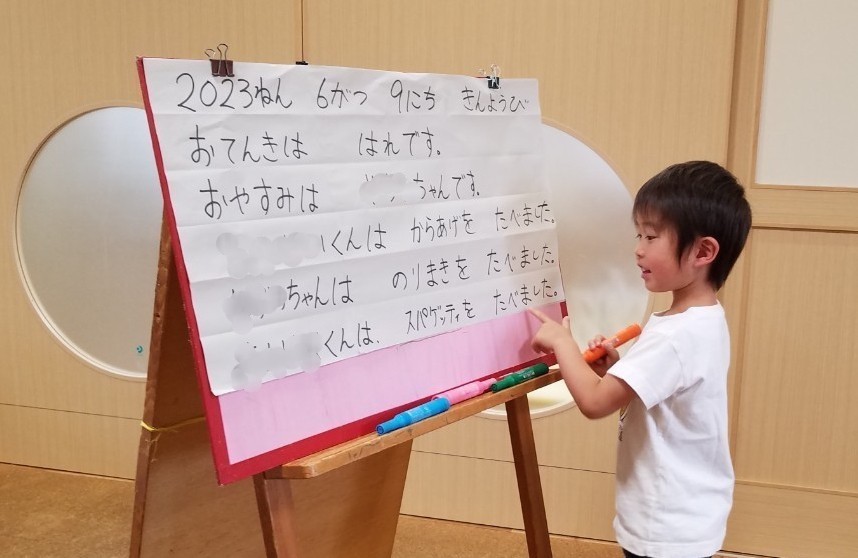 2023ねん 6がつ 9にち きんようび
おてんきは はれです。
おやすみは ちゃんです。
くんは からあげを たべました。
ちゃんは のりまきを たべました。
くんは、スパゲッティを たべました。